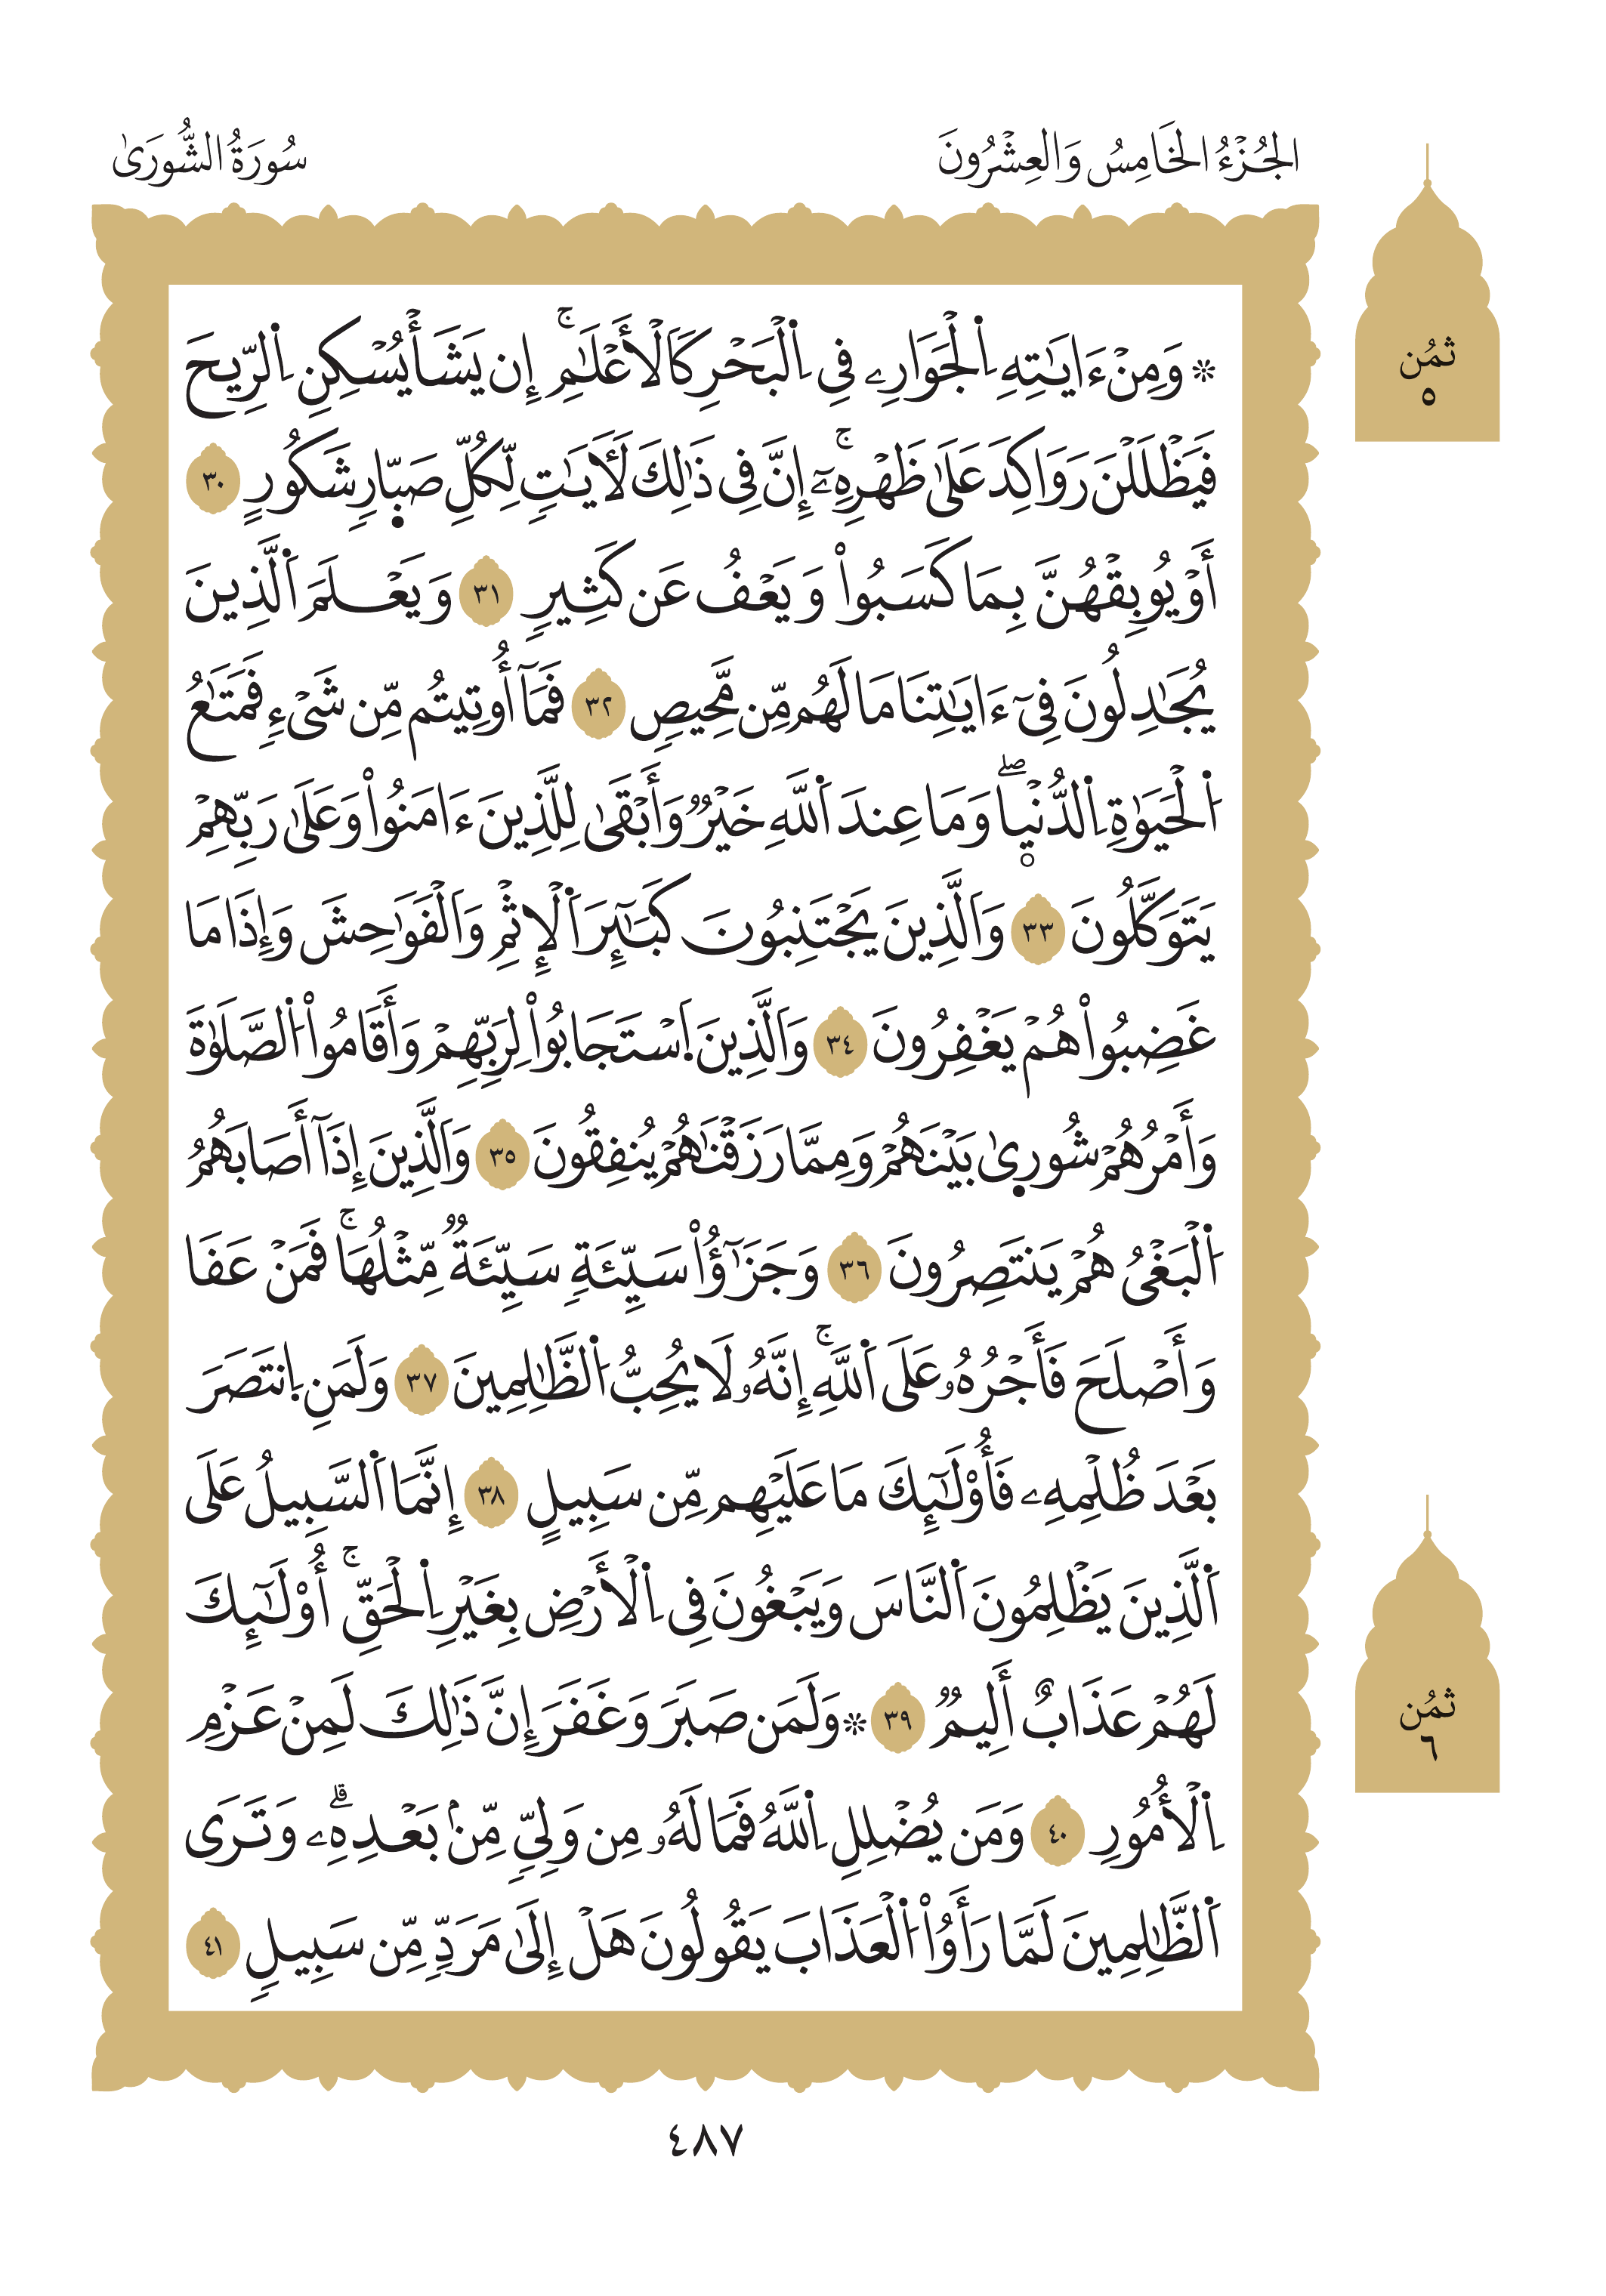 الجُزْءُ الخَامِسُ وَالعِشْرُونَ
سُورَةُ الشُّورَىٰ
ثمُن
٥
۞ وَمِنْ ءَايَٰتِهِ اِ۬لْجَوَارِۦ فِے اِ۬لْبَحْرِ كَالَاْعْلَٰمِۖ إِنْ يَشَأْ يُسْكِنِ اِ۬لرِّيحَ
فَيَظْلَلْنَ رَوَاكِدَ عَلَىٰ ظَهْرِهِۦٓۚ إِنَّ فِى ذَٰلِكَ لَأٓيَٰتٍ لِّكُلِّ صَبّ۪ارٍ شَكُورٍ ٣٠
أَوْ يُوبِقْهُنَّ بِمَا كَسَبُواْ وَيَعْفُ عَن كَثِيرٍ ٣١ وَيَعْلَمَ اَ۬لَّذِينَ
يُجَٰدِلُونَ فِىٓ ءَايَٰتِنَا مَا لَهُم مِّن مَّحِيصٍ ٣٢ فَمَآ أُوتِيتُم مِّن شَىْءٍ فَمَتَٰعُ
اُ۬لْحَيَوٰةِ اِ۬لدُّنْي۪اۖ وَمَا عِندَ اَ۬للَّهِ خَيْرٌ وَأَبْقَىٰ لِلَّذِينَ ءَامَنُواْ وَعَلَىٰ رَبِّهِمْ
يَتَوَكَّلُونَ ٣٣ وَالَّذِينَ يَجْتَنِبُونَ كَبَٰٓئِرَ اَ۬لْإِثْمِ وَالْفَوَٰحِشَ وَإِذَا مَا
غَضِبُواْ هُمْ يَغْفِرُونَ ٣٤ وَالَّذِينَ اَ۪سْتَجَابُواْ لِرَبِّهِمْ وَأَقَامُواْ اُ۬لصَّلَوٰةَ
وَأَمْرُهُمْ شُور۪ىٰ بَيْنَهُمْ وَمِمَّا رَزَقْنَٰهُمْ يُنفِقُونَ ٣٥ وَالَّذِينَ إِذَآ أَصَابَهُمُ
اُ۬لْبَغْىُ هُمْ يَنتَصِرُونَ ٣٦ وَجَزَٰٓؤُاْ سَيِّئَةٍ سَيِّئَةٌ مِّثْلُهَاۚ فَمَنْ عَفَا
وَأَصْلَحَ فَأَجْرُهُۥ عَلَى اَ۬للَّهِۚ إِنَّهُۥ لَا يُحِبُّ اُ۬لظَّٰلِمِينَ ٣٧ وَلَمَنِ اِ۪نتَصَرَ
بَعْدَ ظُلْمِهِۦ فَأُوْلَٰٓئِكَ مَا عَلَيْهِم مِّن سَبِيلٍ ٣٨ إِنَّمَا اَ۬لسَّبِيلُ عَلَى
اَ۬لَّذِينَ يَظْلِمُونَ اَ۬لنَّاسَ وَيَبْغُونَ فِى اِ۬لْأَرْضِ بِغَيْرِ اِ۬لْحَقِّۚ أُوْلَٰٓئِكَ
لَهُمْ عَذَابٌ أَلِيمٌ ٣٩ ۞ وَلَمَن صَبَرَ وَغَفَرَ إِنَّ ذَٰلِكَ لَمِنْ عَزْمِ
اِ۬لْأُمُورِ ٤٠ وَمَن يُضْلِلِ اِ۬للَّهُ فَمَا لَهُۥ مِن وَلِىٍّ مِّنۢ بَعْدِهِۦۗ وَتَرَى
اَ۬لظَّٰلِمِينَ لَمَّا رَأَوُاْ اُ۬لْعَذَابَ يَقُولُونَ هَلْ إِلَىٰ مَرَدٍّ مِّن سَبِيلٍ ٤١
ثمُن
٦
٤٨٧